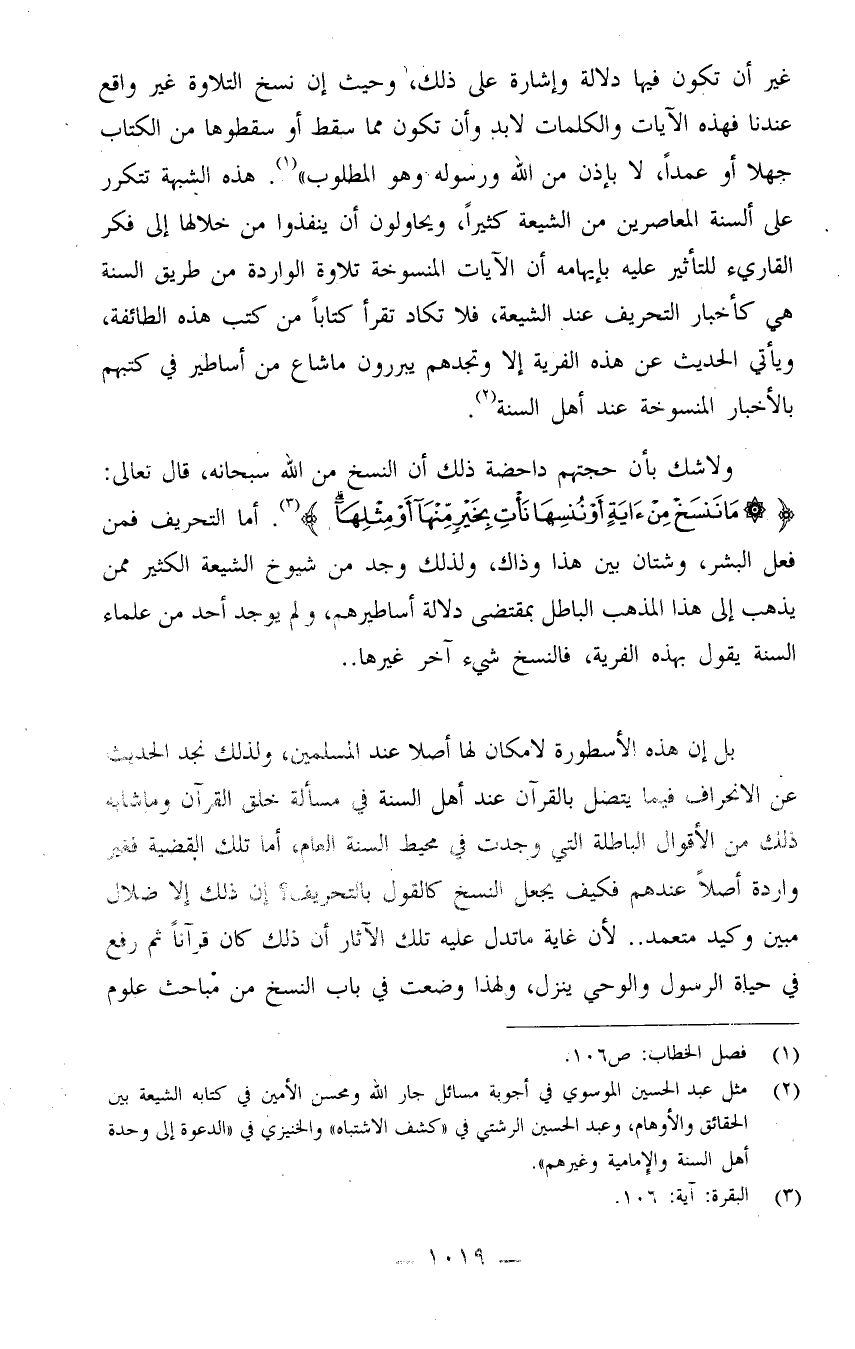 غير أن تكون فيها دلالة وإشارة على ذلك، وحيث إن نسخ التلاوة غير واقع
عندنا فهذه الآيات والكلمات لابد وأن تكون مما سقط أو سقطوها من الكتاب
جهلا أو عمداً، لا بإذن من الله ورسوله وهو المطلوب»(١). هذه الشبهة تتكرر
على ألسنة المعاصرين من الشيعة كثيراً، ويحاولون أن ينفذوا من خلالها إلى فكر
القاريء للتأثير عليه بإيهامه أن الآيات المنسوخة تلاوة الواردة من طريق السنة
هي كأخبار التحريف عند الشيعة، فلا تكاد تقرأ كتاباً من كتب هذه الطائفة،
ويأتي الحديث عن هذه الفرية إلا وتجدهم يبررون ماشاع من أساطير في كتبهم
بالأخبار المنسوخة عند أهل السنة(٢).
ولاشك بأن حجتهم داحضة ذلك أن النسخ من الله سبحانه، قال تعالى:
﴿ ۞ مَا نَنسَخْ مِنْ ءَايَةٍ أَوْ نُنسِهَا نَأْتِ بِخَيْرٍ مِّنْهَآ أَوْ مِثْلِهَآ ﴾(٣). أما التحريف فمن
فعل البشر، وشتان بين هذا وذاك، ولذلك وجد من شيوخ الشيعة الكثير ممن
يذهب إلى هذا المذهب الباطل بمقتضى دلالة أساطيرهم، ولم يوجد أحد من علماء
السنة يقول بهذه الفرية، فالنسخ شيء آخر غيرها..
بل إن هذه الأسطورة لامكان لها أصلا عند المسلمين، ولذلك نجد الحديث
عن الانحراف فيما يتصل بالقرآن عند أهل السنة في مسألة خلق القرآن وماشابه
ذلك من الأقوال الباطلة التي وجدت في محيط السنة العام، أما تلك القضية فغير
واردة أصلاً عندهم فكيف يجعل النسخ كالقول بالتحريف؟ إن ذلك إلا ضلال
مبين وكيد متعمد.. لأن غاية ماتدل عليه تلك الآثار أن ذلك كان قرآناً ثم رفع
في حياة الرسول والوحي ينزل، ولهذا وضعت في باب النسخ من مباحث علوم
(١) فصل الخطاب: ص١٠٦.
(٢) مثل عبد الحسين الموسوي في أجوبة مسائل جار الله ومحسن الأمين في كتابه الشيعة بين
الحقائق والأوهام، وعبد الحسين الرشتي في «كشف الاشتباه» والخنيزي في «الدعوة إلى وحدة
أهل السنة والإمامية وغيرهم».
(٣) البقرة: آية: ١٠٦.
— ١٠١٩ —